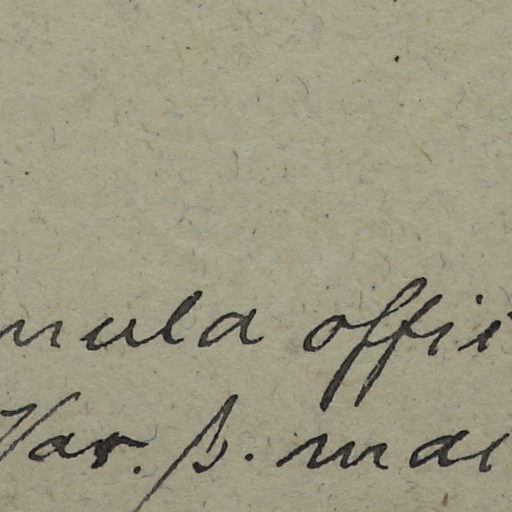 mula offi
Var. β. mac